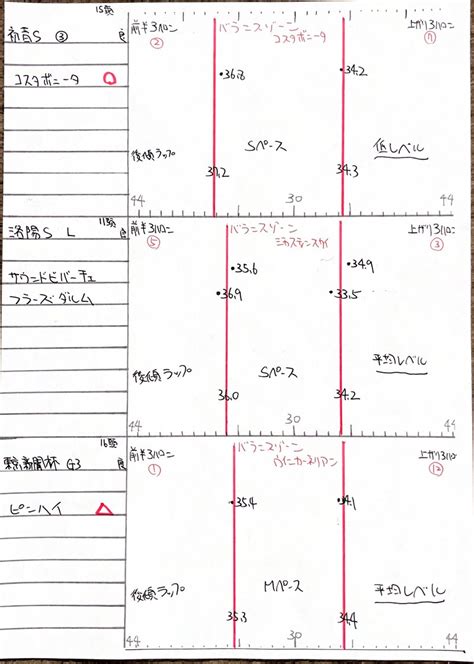 15頭
初音S ③ 良
前半3ハロン
②
バランスゾーン
コスタボニータ
上がり3ハロン
⑦
コスタボニータ ○
•36.8
•34.2
後傾ラップ
Sペース
低レベル
37.2
34.3
44
30
44
11頭
洛陽S L 良
前半3ハロン
⑤
バランスゾーン
ミッキー
上がり3ハロン
③
サウンドビバーチェ
•35.6
•34.9
フラーズダルム
•36.9
•33.5
後傾ラップ
Sペース
平均レベル
36.0
34.2
44
30
44
16頭
東京新聞杯 G3 良
前半3ハロン
①
バランスゾーン
ウインカーネリアン
上がり3ハロン
⑫
ピンハイ △
•35.4
•34.1
後傾ラップ
Mペース
平均レベル
35.3
34.4
44
30
44